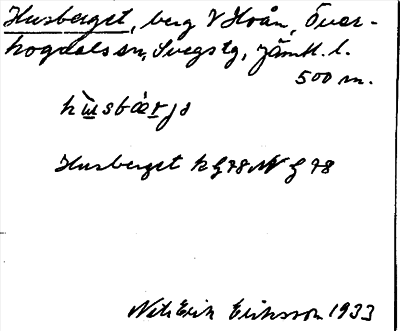 Husberget, berg V Hoån, Över-
hogdals sn, Svegs tg, Jämtl. l.
500 m.
Husberget
Nils Erik Eriksson 1933